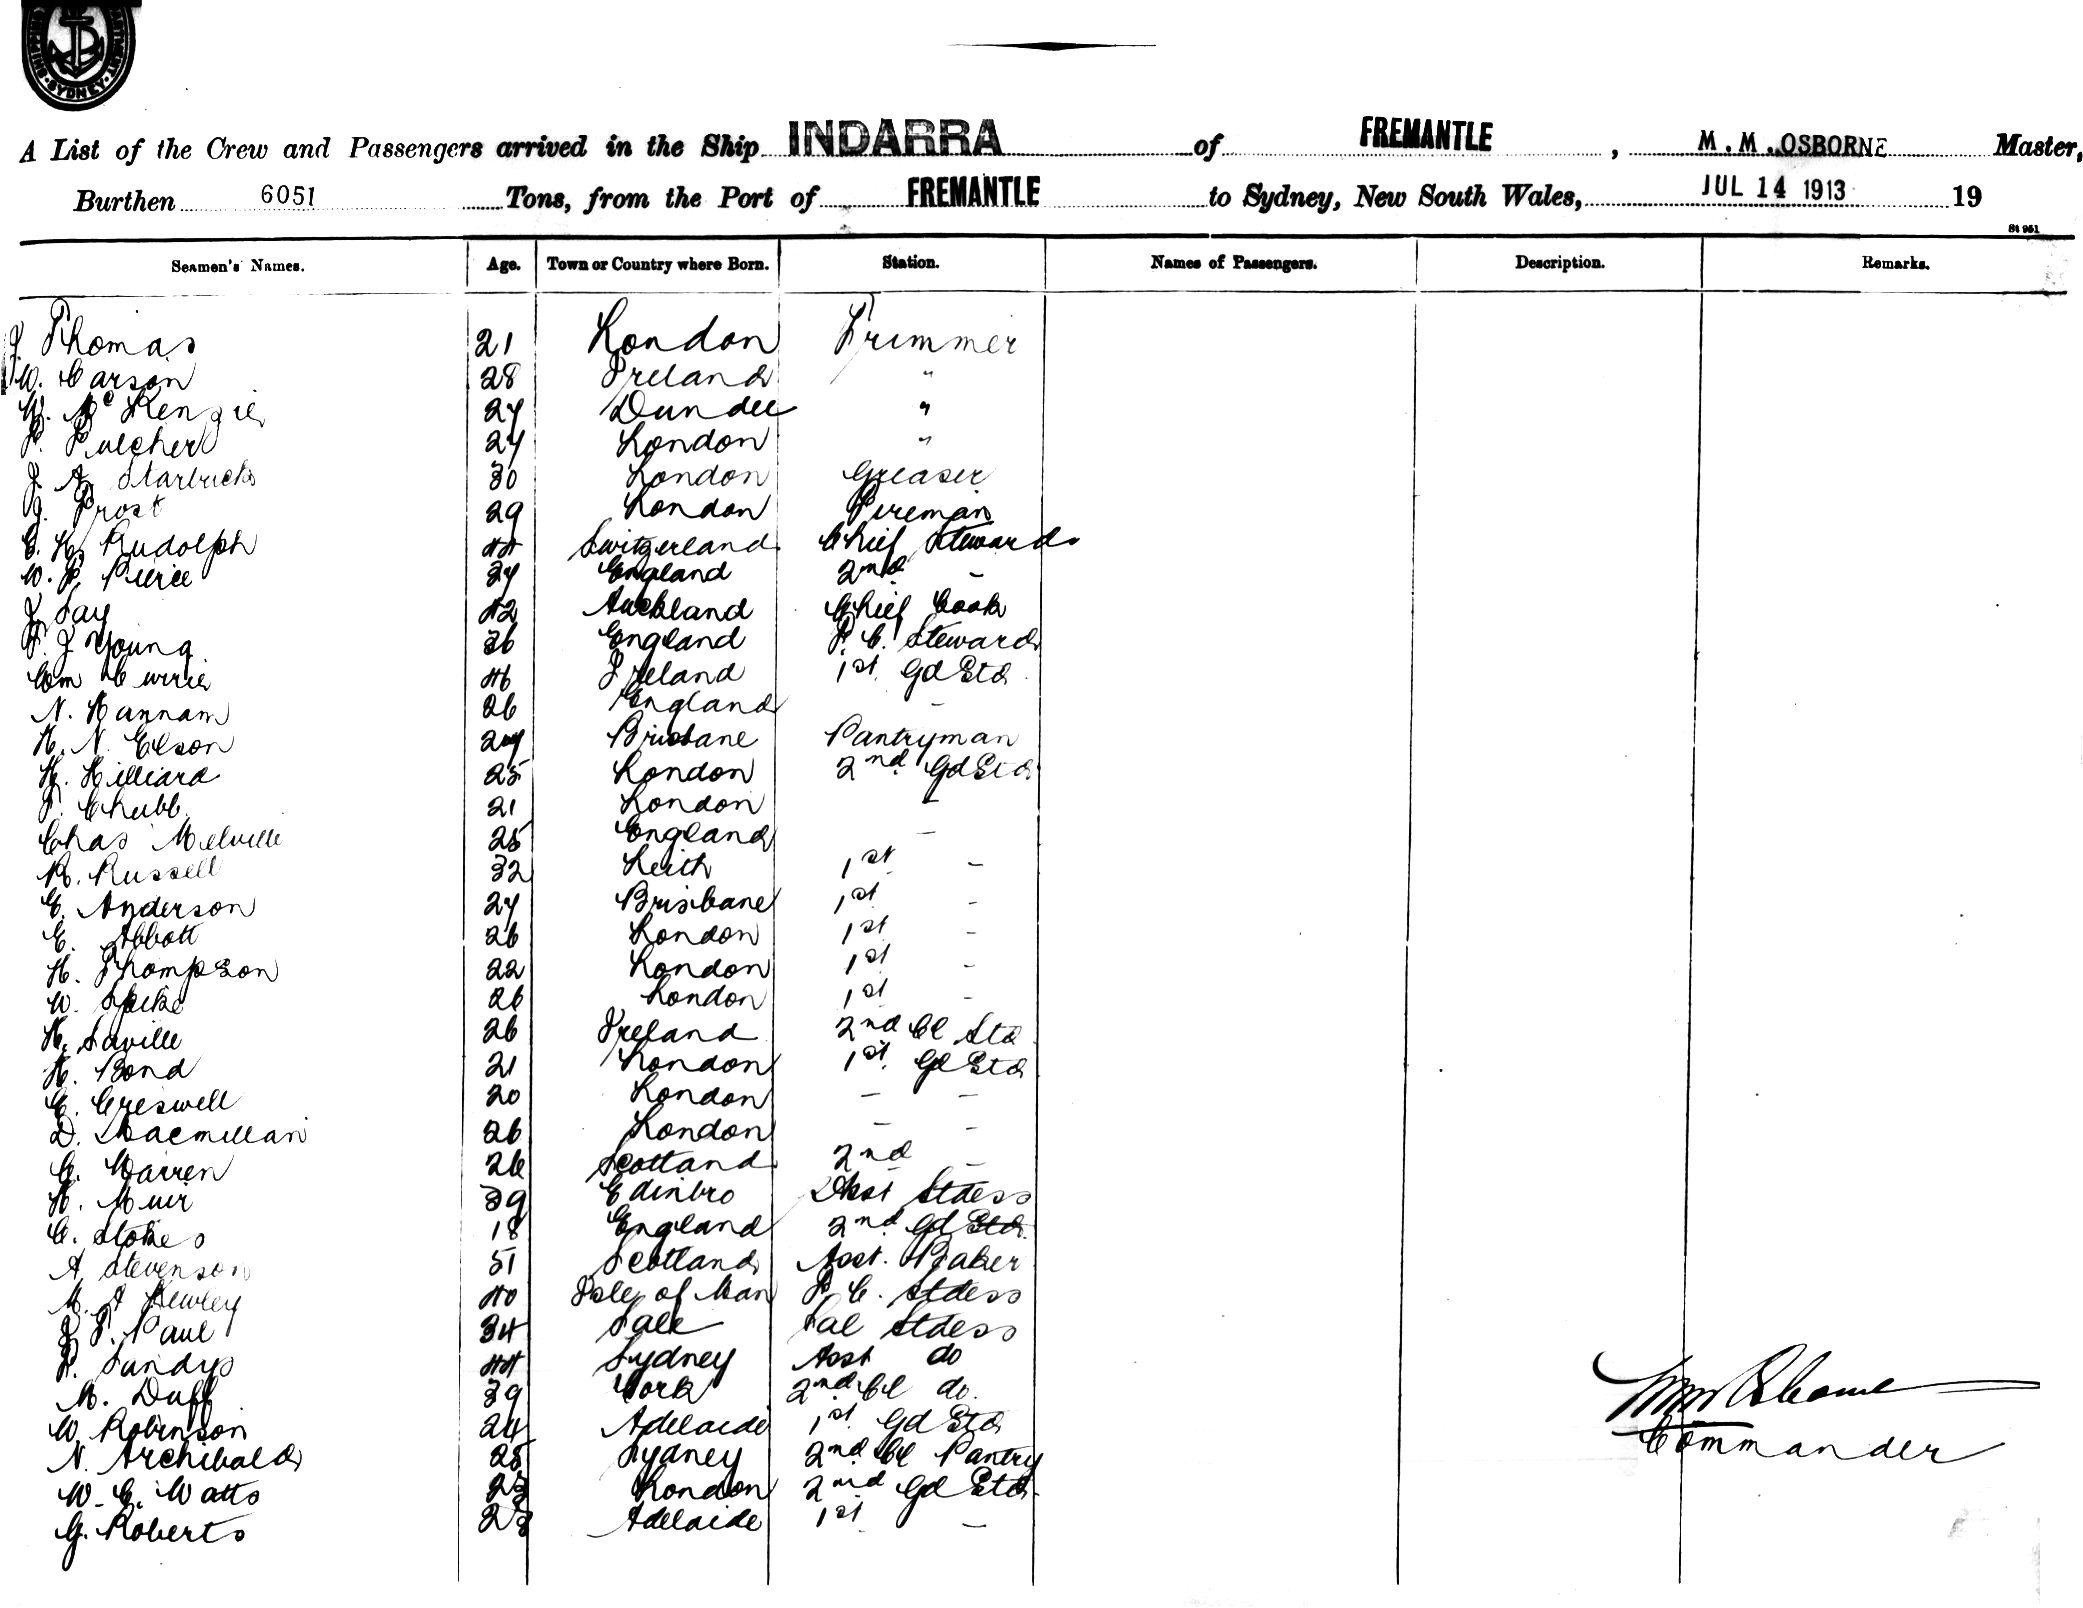 SHIPPING SYDNEY
A List of the Crew and Passengers arrived in the Ship INDARRA of FREMANTLE, M. M. OSBORNE Master,
Burthen 6051 Tons, from the Port of FREMANTLE to Sydney, New South Wales, JUL 14 1913 19
St 951
Seamen's Names. Age. Town or Country where Born. Station. Names of Passengers. Description. Remarks.
J. Thomas 21 London Trimmer
W. Carson 28 Ireland "
W. McKenzie 27 Dundee "
P. Pulcher 27 London "
J. A. Starbucks 30 London Greaser
J. Frost 29 London Fireman
C. H. Rudolph 44 Switzerland Chief Steward
W. P. Pierce 37 England 2nd -
J. Jay 42 Auckland Chief Cook
F. J Young 36 England P. C. Steward
Wm Currie 46 Ireland 1st Gd Std
N. Hannam 26 England -
H. N. Elson 27 Brisbane Pantryman
H. Hilliard 25 London 2nd Gd Std
T. Chubb 21 London -
Chas Melville 25 England -
R. Russell 32 Leith 1st -
E. Anderson 27 Brisbane 1st -
E. Abbott 26 London 1st -
H. Thompson 22 London 1st -
W. Spike 26 London 1st -
H. Saville 26 Ireland 2nd Cl Std
H. Bond 21 London 1st Gd Std
C. Creswell 20 London - -
D. Macmillan 26 London - -
G. Warren 26 Scotland 2nd -
H. Muir 39 Edinbro Dkst Stdess
C. Stokes 18 England 2nd Gd Std
A Stevenson 51 Scotland Asst. Baker
M. A Kewley 40 Isle of Man P. C. Stdess
J. T. Paul 34 Sale Sal Stdess
P. Sandys 44 Sydney Asst do
M. Duff 39 Cork 2nd Cl do.
W. Robinson 24 Adelaide 1st Gd Std
N. Archibald 25 Sydney 2nd Cl Pantry
W. C. Watts 23 London 2nd Gd Std
G. Roberts 23 Adelaide 1st -
M M Osborne
Commander